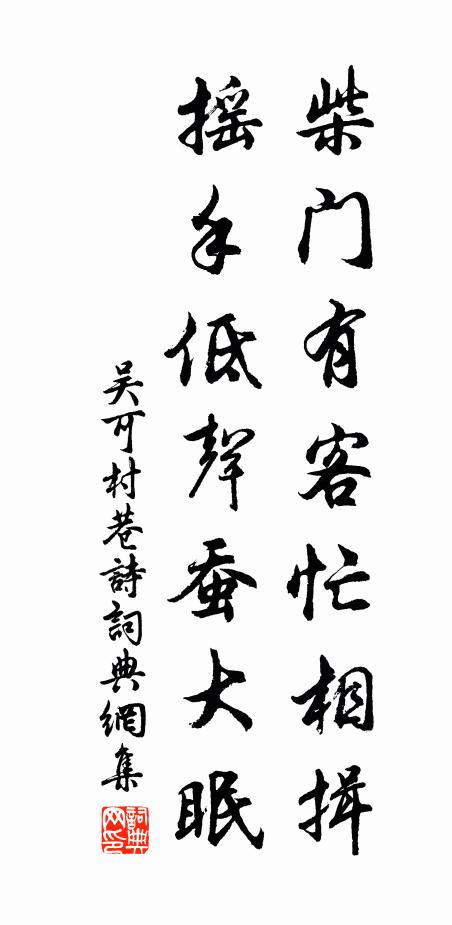 柴门有客忙相揖
摇手低聲蚕大眠
吴可村巷詩詞典網集
詞典網印